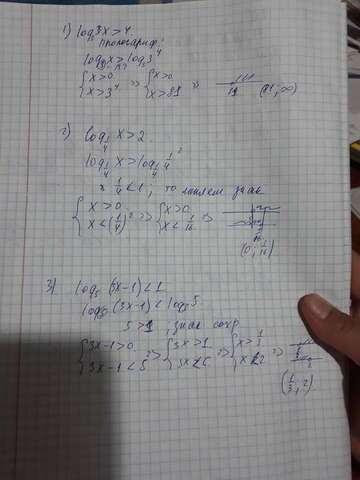 1) log₃ x > 4
log₃ x > log₃ 3⁴
{ x > 0 x > 3⁴ => { x > 0 x > 81 => (81, ∞)
2) log 1/4 x > 2
log 1/4 x > log 1/4 1/4 ²
1/4 < 1, то меняем знак
{ x > 0 x < (1/4)² => { x > 0 x < 1/16 =>
(0, 1/16)
3) log₅ (3x-1) < 1
log₅ (3x-1) < log₅ 5
5 > 1, знак сохр
{ 3x-1 > 0 3x-1 < 5 => { 3x > 1 3x < 6 => { x > 1/3 x < 2 =>
(1/3, 2)